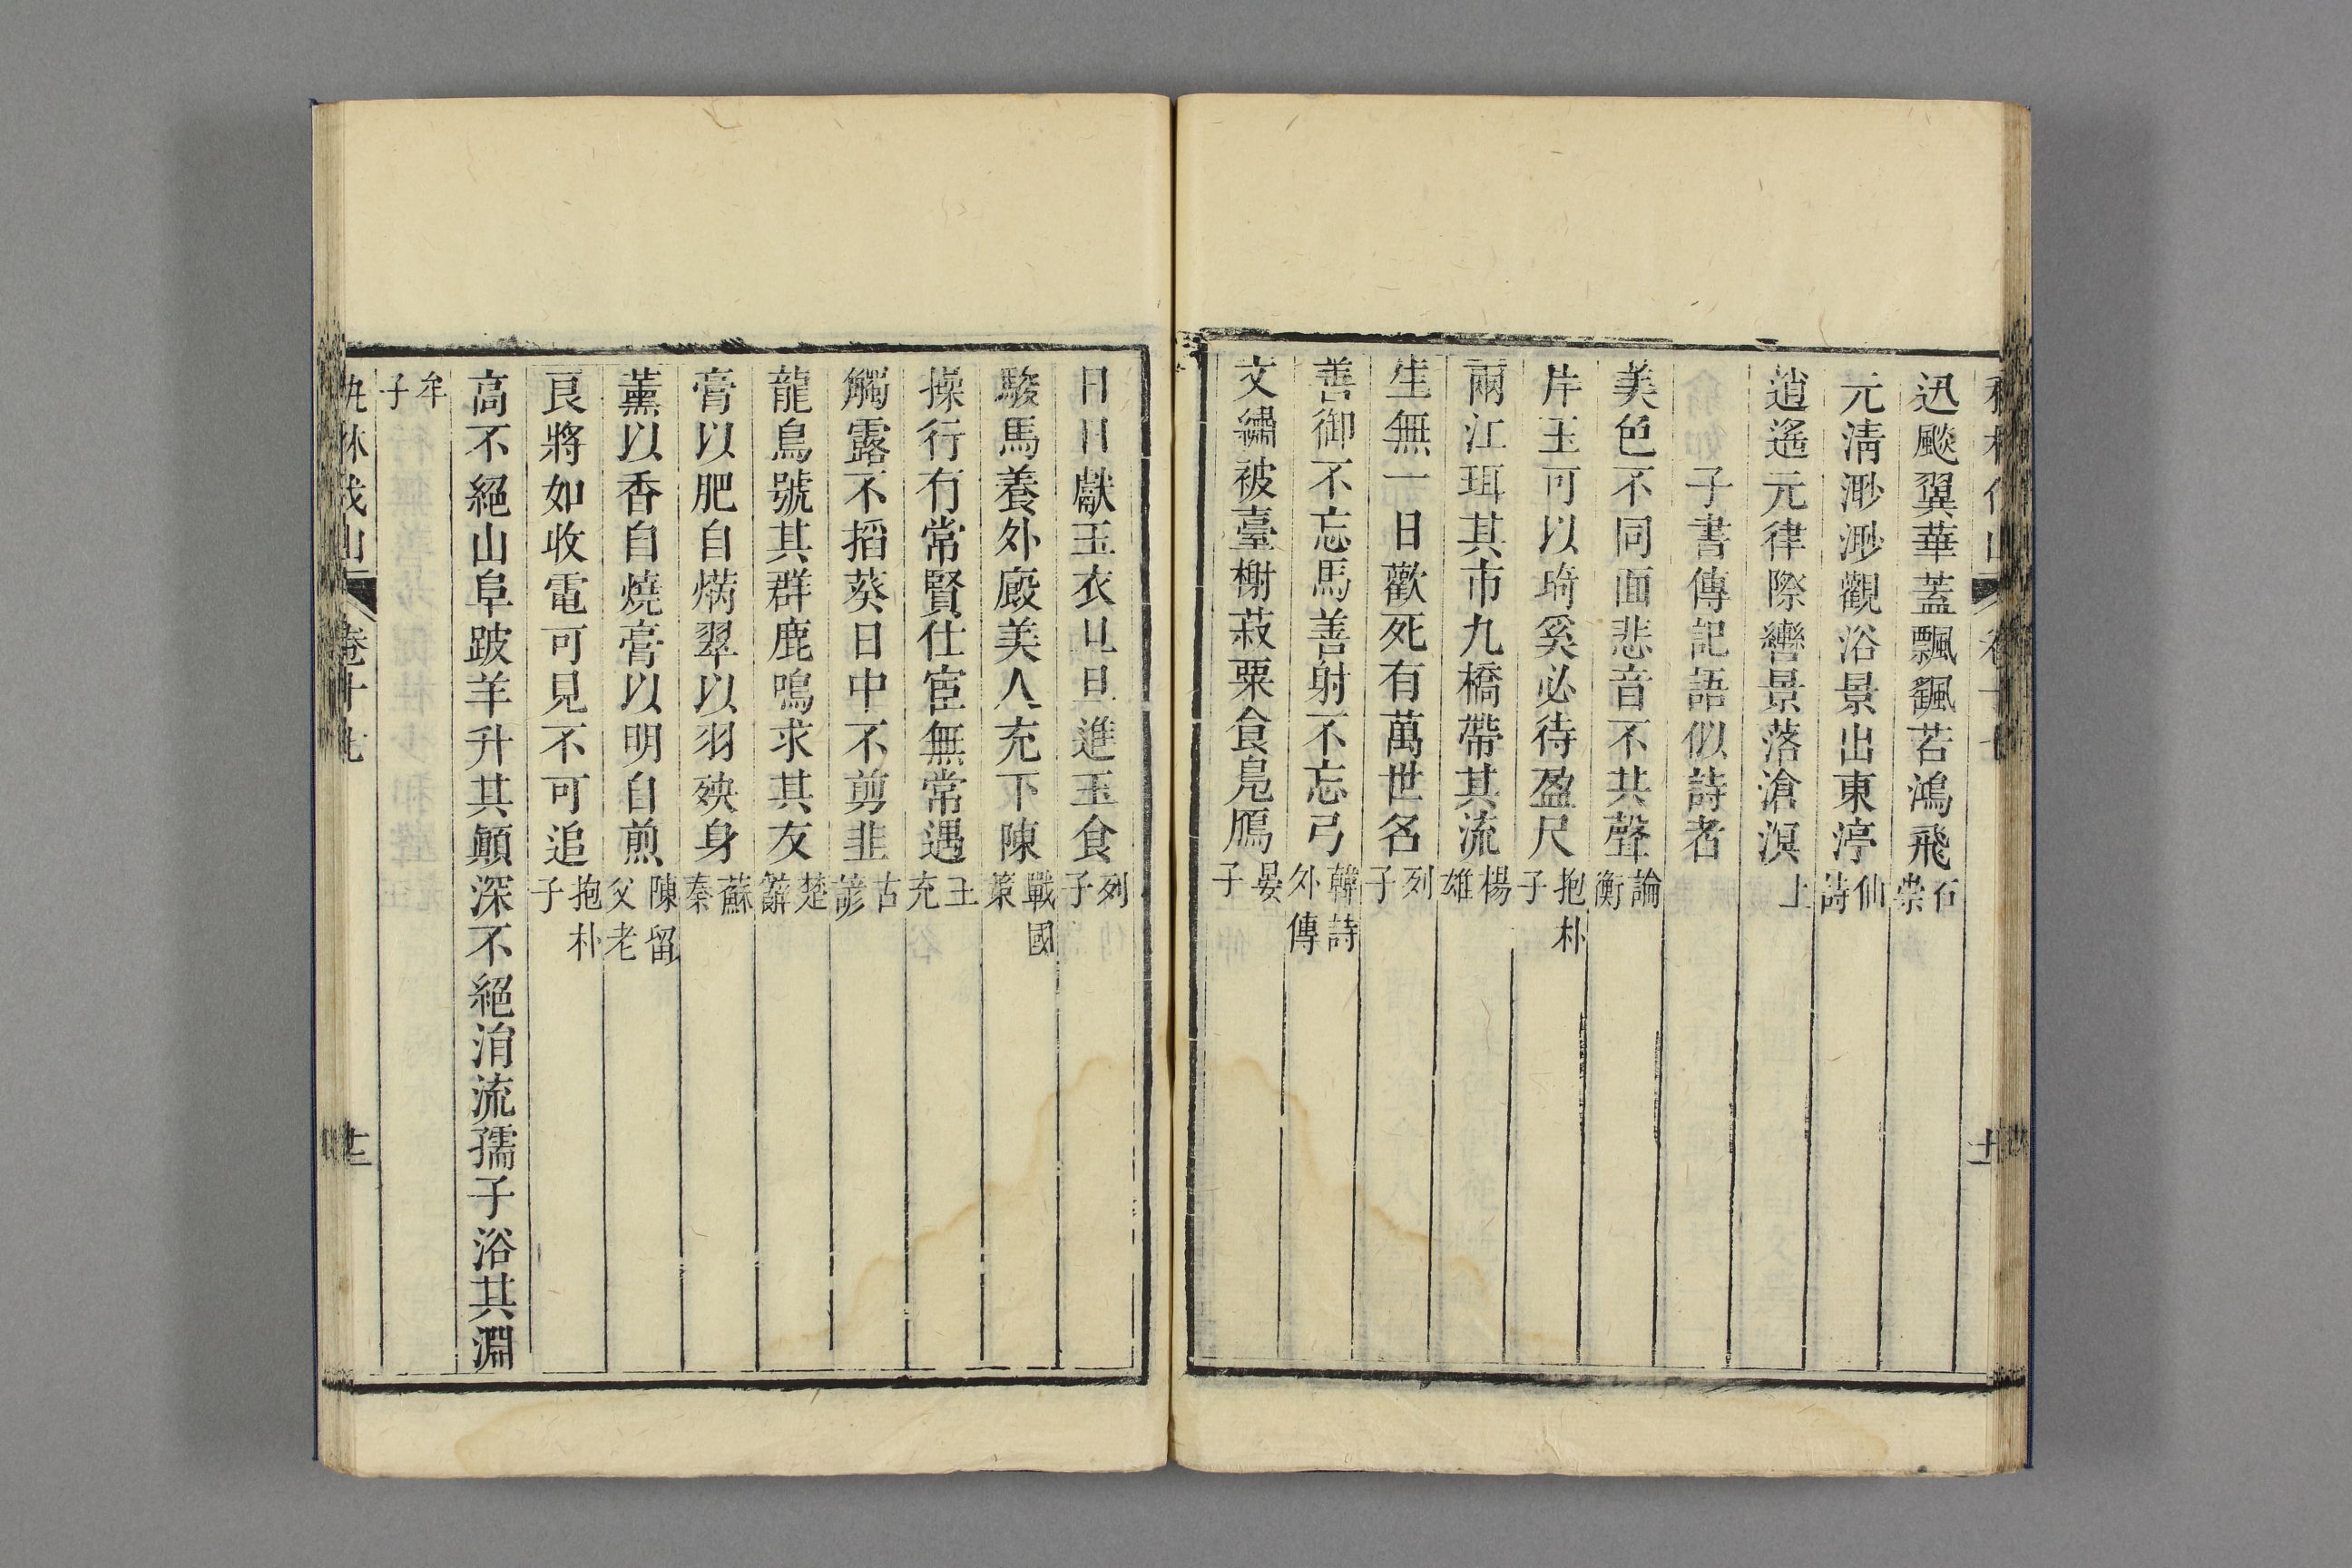 迅飈翼華蓋飄颻若鴻飛石崇
元清渺渺觀浴景出東渟仙詩
逍遙元律際轡景落滄溟上
子書傳記語似詩者
美色不同面悲音不共聲論衡
片玉可以琦奚必待盈尺抱朴子
兩江珥其市九橋帶其流楊雄
生無一日歡死有萬世名列子
善御不忘馬善射不忘弓韓詩外傳
文繡被臺榭菽粟食鳧鴈晏子
日日獻玉衣旦旦進玉食列子
駿馬養外廄美人充下陳戰國策
操行有常賢仕宦無常遇王充
觸露不搯葵日中不剪韭古諺
龍鳥號其群鹿鳴求其友楚辭
膏以肥自焫翠以羽殃身蘇秦
薰以香自燒膏以明自煎陳留父老
良將如收電可見不可追抱朴子
高不絕山阜跛羊升其顚深不絕涓流孺子浴其淵
牟子
卷十七